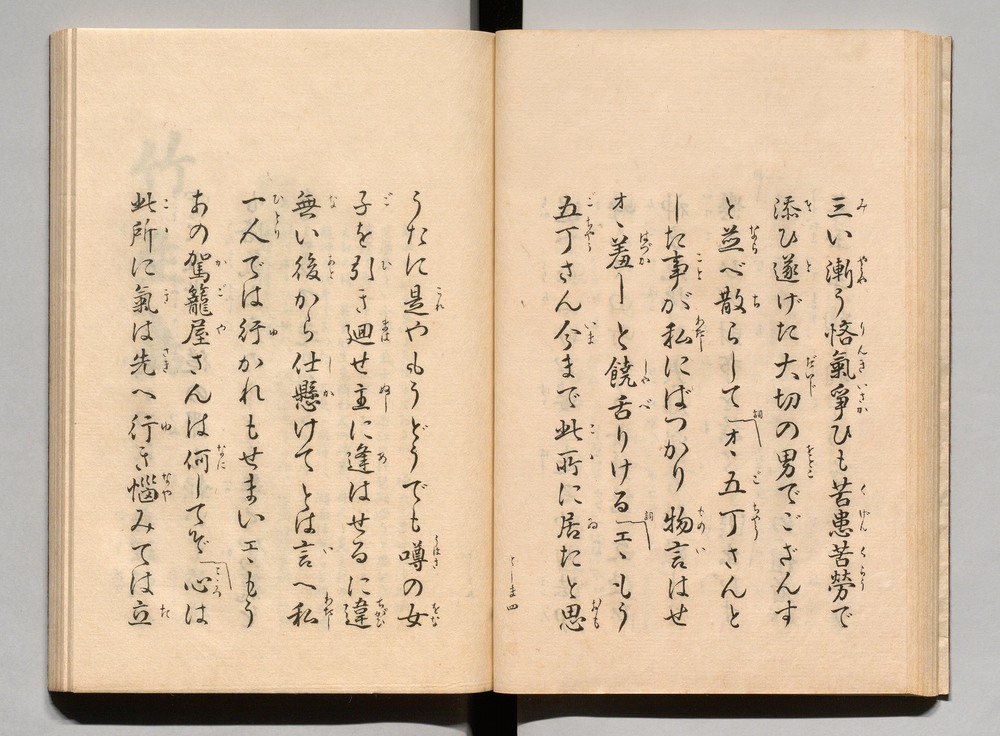 三い漸う悋氣爭ひも苦患苦勞で
添ひ遂げた大切の男でござんす
と並べ散らして詞オヽ五丁さんと
した事が私にばつかり物言はせ
オヽ羞しと饒舌りける詞エヽもう
五丁さん今まで此所に居たと思
うたに是やもうどうでも噂の女
子を引き廻せ主に逢はせるに違
無い後から仕懸けてとは言へ私
一人では行かれもせまいエヽもう
あの駕籠屋さんは何してぞ心は
此所に氣は先へ行き惱みては立